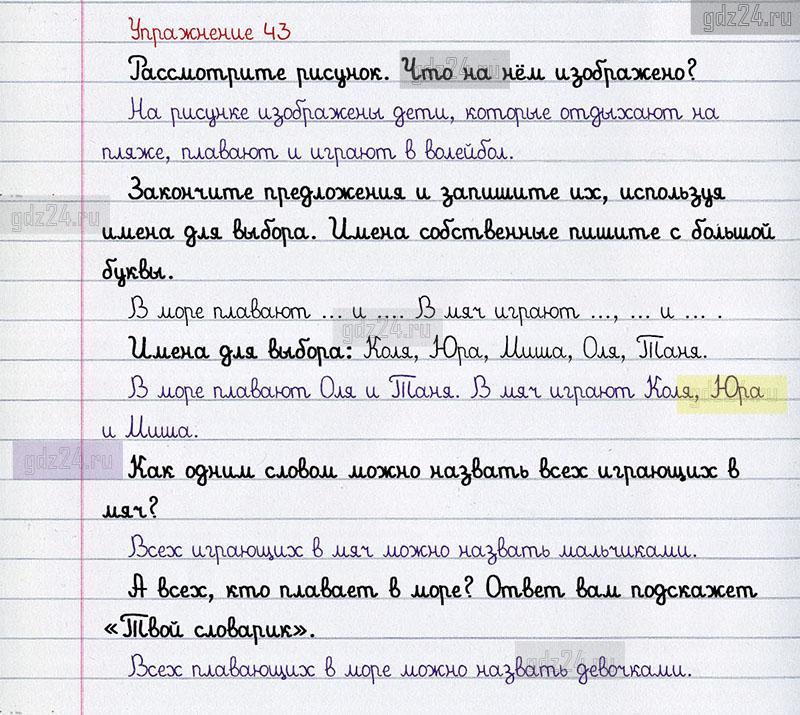 gdz24.ru
Упражнение 43
Рассмотрите рисунок. Что на нём изображено?
gdz24.ru
На рисунке изображены дети, которые отдыхают на
пляже, плавают и играют в волейбол.
Закончите предложения и запишите их, используя
gdz24.ru
имена для выбора. Имена собственные пишите с большой
буквы.
В море плавают ... и .... В мяч играют ..., ... и ... .
gdz24.ru
Имена для выбора: Коля, Юра, Миша, Оля, Таня.
В море плавают Оля и Таня. В мяч играют Коля, Юра
gdz24.ru
и Миша.
gdz24.ru
Как одним словом можно назвать всех играющих в
мяч?
Всех играющих в мяч можно назвать мальчиками.
А всех, кто плавает в море? Ответ вам подскажет
«Твой словарик».
Всех плавающих в море можно назвать девочками.
gdz24.ru